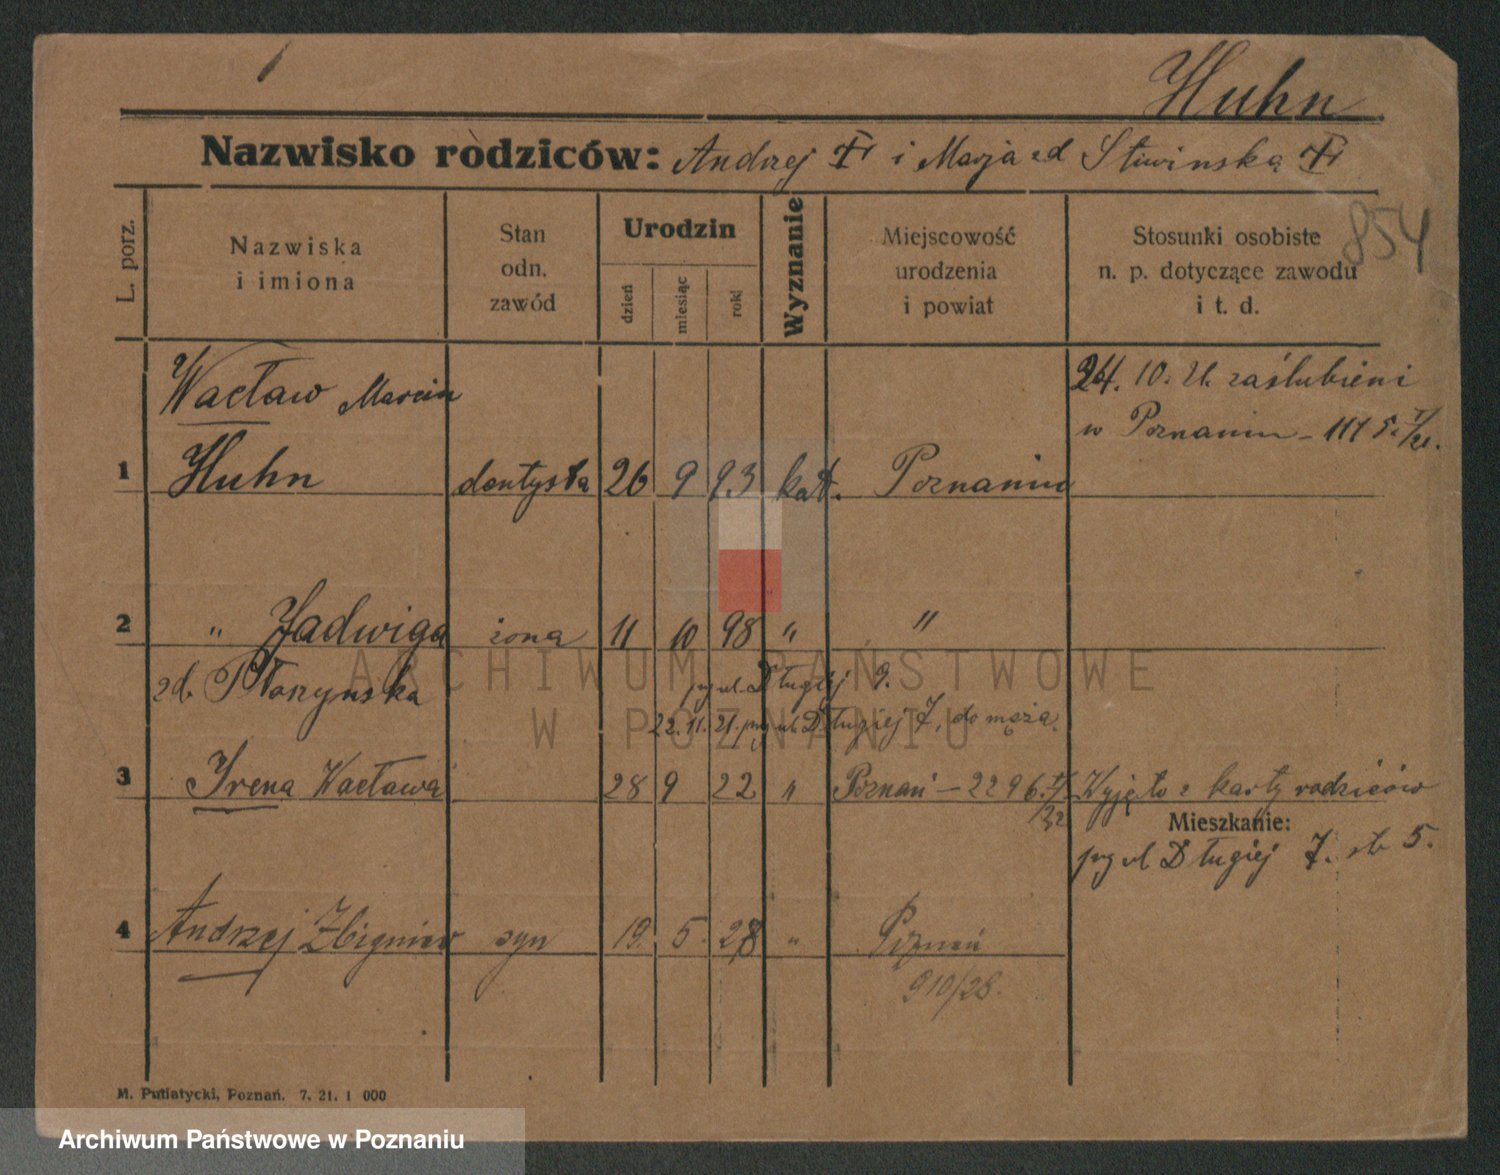 Huhn
Nazwisko rodziców: Andrzej i Marja zd Śliwinska
854
L. porz.
Nazwiska i imiona
Stan odn. zawód
Urodzin
dzień
miesiąc
rok
Wyznanie
Miejscowość urodzenia i powiat
Stosunki osobiste n. p. dotyczące zawodu i t. d.
Wacław Marcin
24. 10. 21. zaślubieni
w Poznaniu - 1115
1 Huhn dentysta 26 9 93 kat. Poznaniu
2 " Jadwiga żona 11 10 98 " "
zd. Płoszynska
ul. Długiej 9.
22. 11. 21. ul. Długiej 7, do męża.
3 Irena Wacława 28 9 22 " Poznań - 2296 Wyjęto z karty rodziców
Mieszkanie:
Długiej 7. 5.
4 Andrzej Zbigniew syn 19. 5. 28 " Poznań
910/28.
M. Putiatycki, Poznań. 7. 21. 1 000
ARCHIWUM PAŃSTWOWE
W POZNANIU
Archiwum Państwowe w Poznaniu